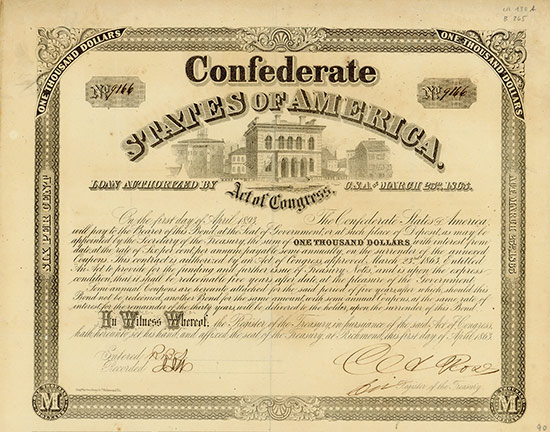 CR 130 A
B 265
ONE THOUSAND DOLLARS
ONE THOUSAND DOLLARS
Confederate
No 9166
No 9166
STATES OF AMERICA.
LOAN AUTHORIZED BY Act of Congress, C.S.A. OF MARCH 23rd, 1863.
SIX PER CENT
On the first day of April 1893, The Confederate States of America
will pay to the Bearer of this Bond, at the Seat of Government or at such place of Deposit, as may be
appointed by the Secretary of the Treasury, the sum of ONE THOUSAND DOLLARS with interest from
date, at the rate of Six per cent, per annum, payable semi-annually, on the surrender of the annexed
Coupons. This contract is authorised by an Act of Congress approved March 23rd 1863, Entitled
An Act to provide for the funding and further issue of Treasury Notes, and is upon the express
condition, that it shall be redeemable five years after date, at the pleasure of the Government.
Semi-annual Coupons are hereunto attached for the said period of five years, after which, should this
Bond not be redeemed, another Bond for the same amount, with semi-annual Coupons at the same rate of
interest for the remainder of the thirty years, will be delivered to the holder upon the surrender of this Bond.
In Witness Whereof, the Register of the Treasury, in pursuance of the said Act of Congress,
hath hereunto set his hand, and affixed the seal of the Treasury, at Richmond, this first day of April 1863.
Entered
Recorded
Register of the Treasury
M
M
90